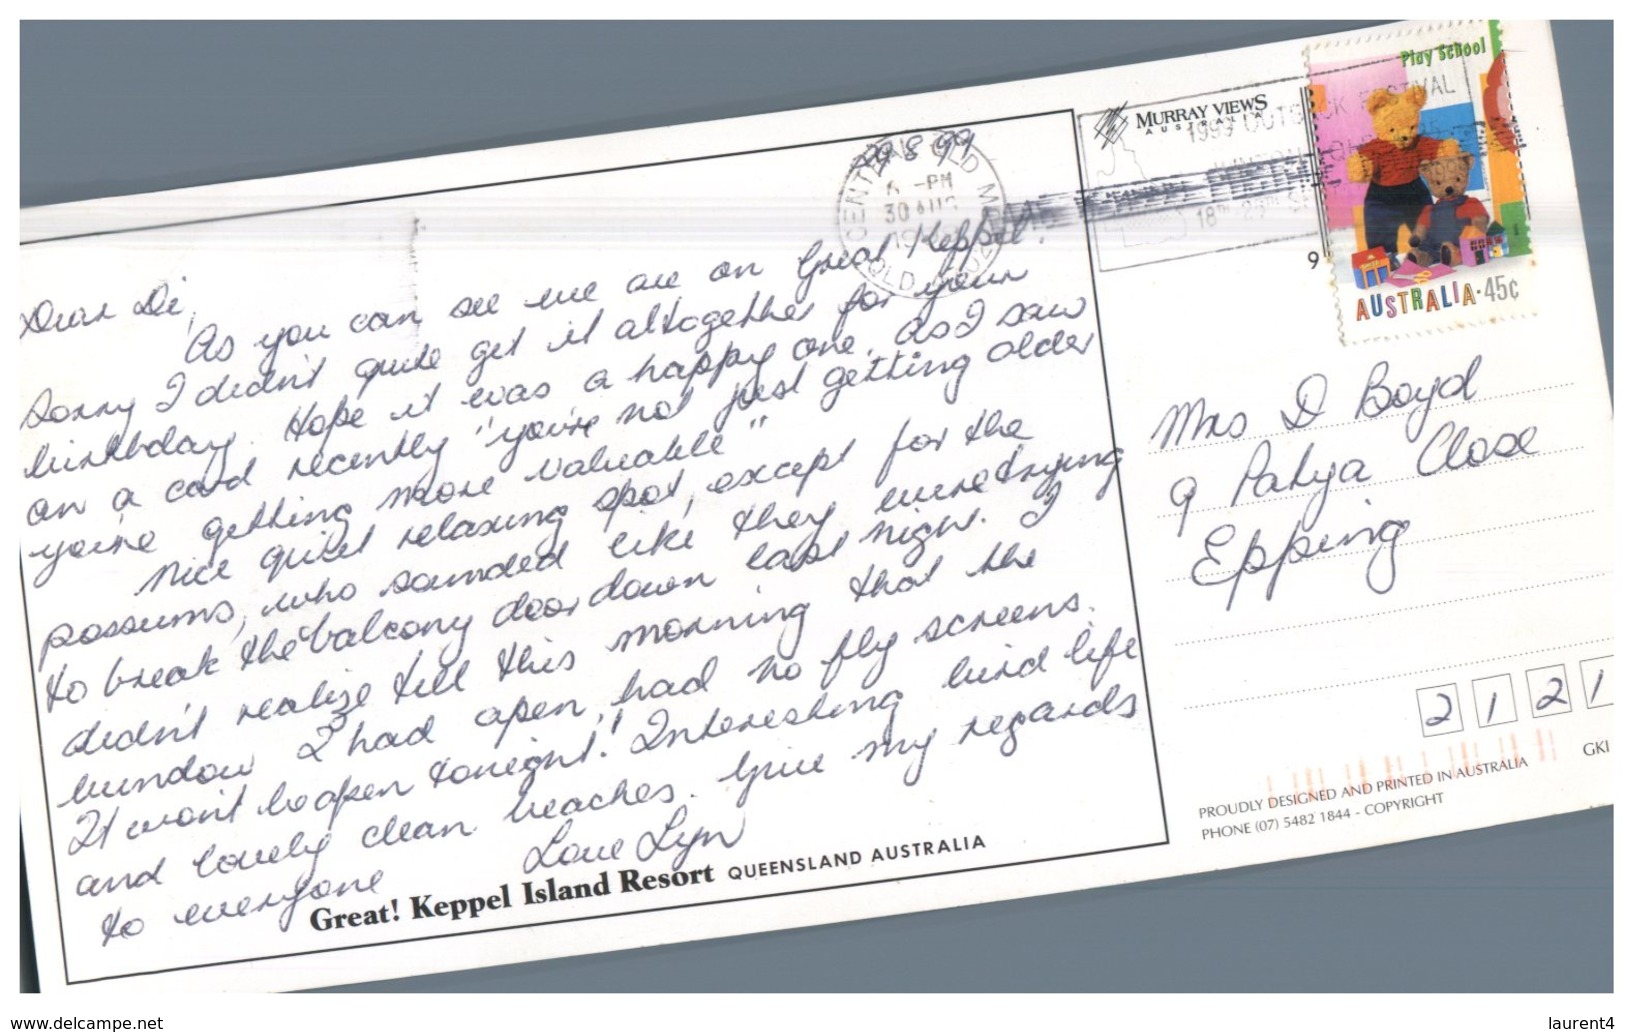 29 8 99
Dear Di,
As you can see we are on Great Keppel.
Sorry I didn't quite get it altogether for your
birthday. Hope it was a happy one. As I saw
on a card recently "you're not just getting older
you're getting more valuable"
Nice quiet relaxing spot, except for the
possums, who sounded like they were trying
to break the balcony door down last night. I
didn't realize till this morning that the
window I had open, had no fly screens.
It won't be open tonight! Interesting bird life
and lovely clean beaches. Give my regards
to everyone
Love Lyn
Great! Keppel Island Resort QUEENSLAND AUSTRALIA
MURRAY VIEWS
AUSTRALIA
6 -PM
30 AUG
1999 OUTBACK FESTIVAL
Play School
AUSTRALIA·45c
9
Mrs D Boyd
9 Patya Close
Epping
2121
GKI
PROUDLY DESIGNED AND PRINTED IN AUSTRALIA
PHONE (07) 5482 1844 - COPYRIGHT
www.delcampe.net
laurent4